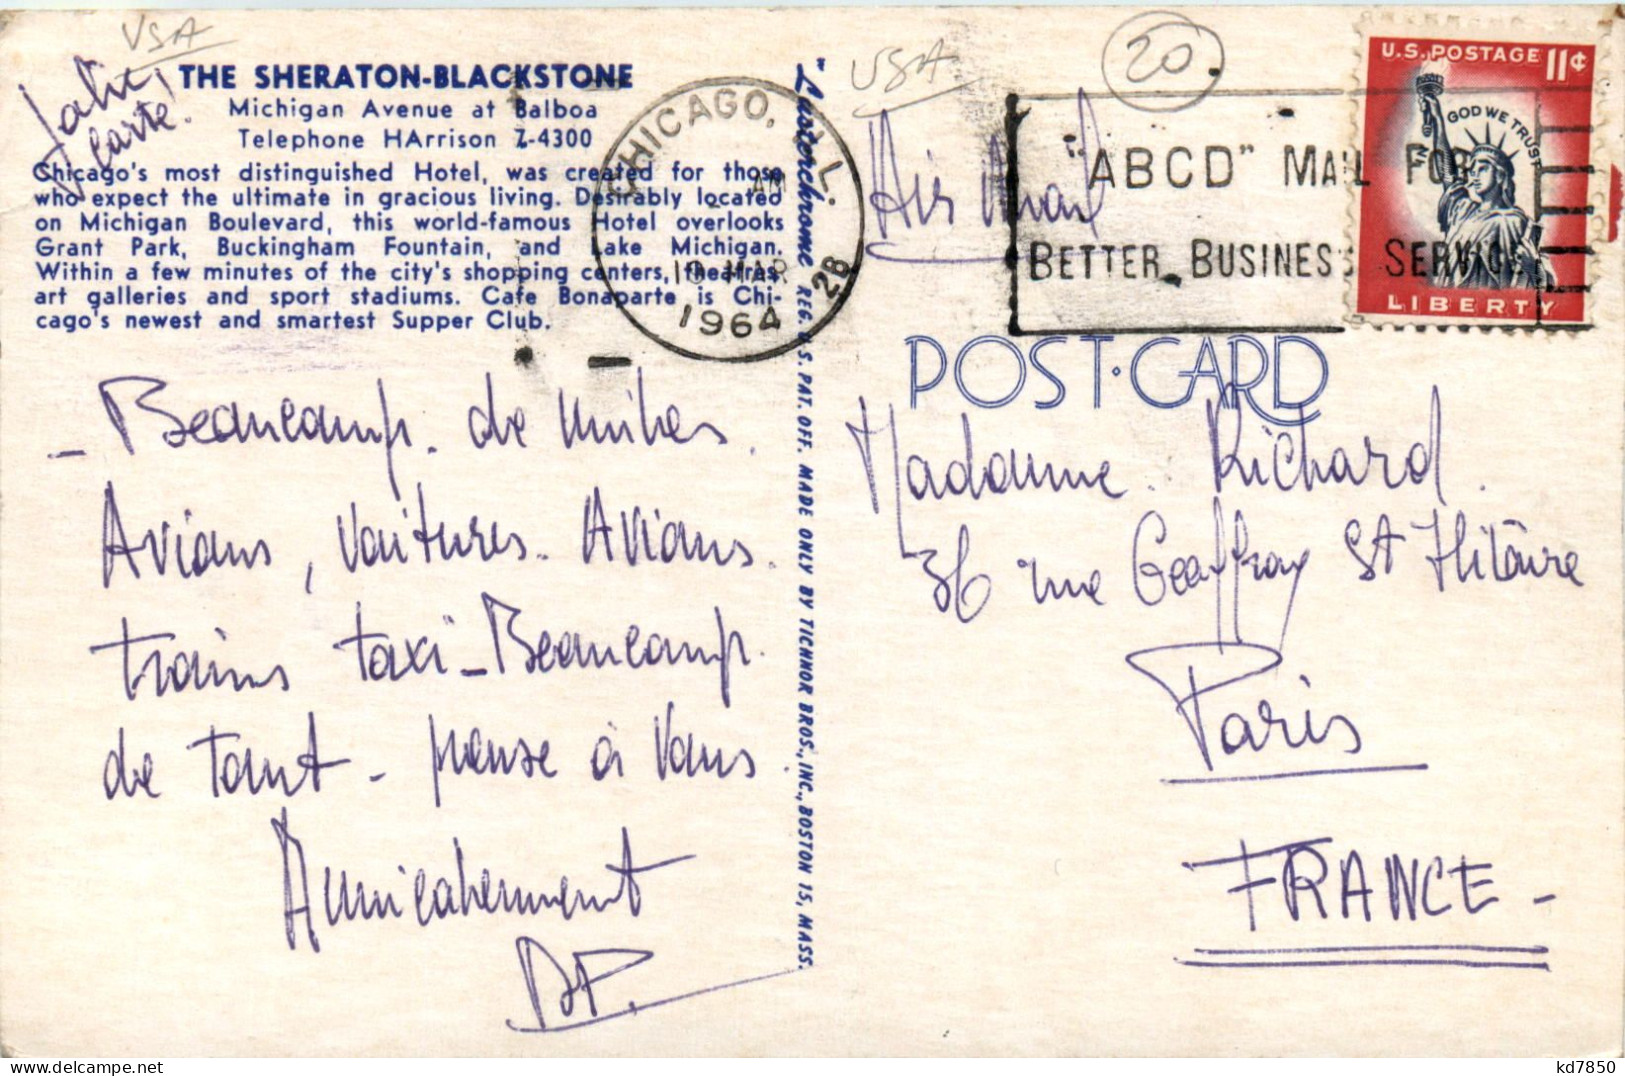 USA
Jolie
carte!
THE SHERATON-BLACKSTONE
Michigan Avenue at Balboa
Telephone HArrison 7-4300
Chicago's most distinguished Hotel, was created for those
who expect the ultimate in gracious living. Desirably located
on Michigan Boulevard, this world-famous Hotel overlooks
Grant Park, Buckingham Fountain, and Lake Michigan.
Within a few minutes of the city's shopping centers, theatres,
art galleries and sport stadiums. Cafe Bonaparte is Chi-
cago's newest and smartest Supper Club.
- Beaucoup. de miles.
Avions, voitures. Avions.
trains taxi - Beaucoup.
de tout - pense à vous
Amicalement
"Lusterchrome REG. U.S. PAT. OFF. MADE ONLY BY TICHNOR BROS., INC., BOSTON 15, MASS.
CHICAGO, ILL.
AM
10 MAR
1964
28
USA
20.
Air Mail
"ABCD" MAIL FOR
BETTER BUSINESS SERVICE
U.S. POSTAGE 11¢
IN GOD WE TRUST
LIBERTY
POST·CARD
Madame. Richard.
36 rue Geoffroy St Hilaire
Paris
FRANCE -
kd7850